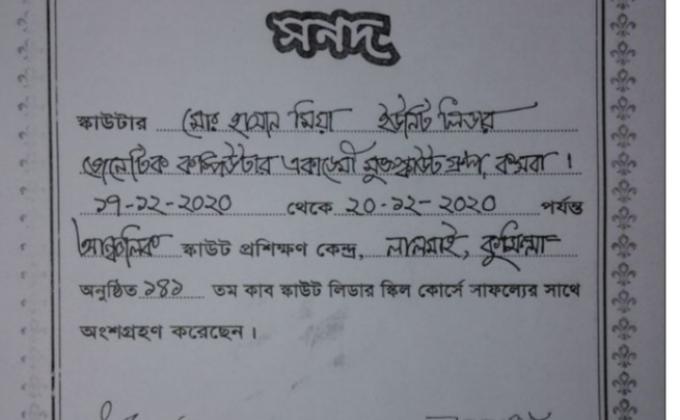 সনদ
স্কাউটার মোঃ হাসান মিয়া ইউনিট লিডার
জেনেটিক কম্পিউটার একাডেমী মুক্তস্কাউট গ্রুপ, কসবা ।
১৭-১২-২০২০ থেকে ২০-১২-২০২০ পর্যন্ত
আঞ্চলিক স্কাউট প্রশিক্ষণ কেন্দ্র, লালমাই, কুমিল্লা
অনুষ্ঠিত ১৪১ তম কাব স্কাউট লিডার স্কিল কোর্সে সাফল্যের সাথে
অংশগ্রহণ করেছেন ।